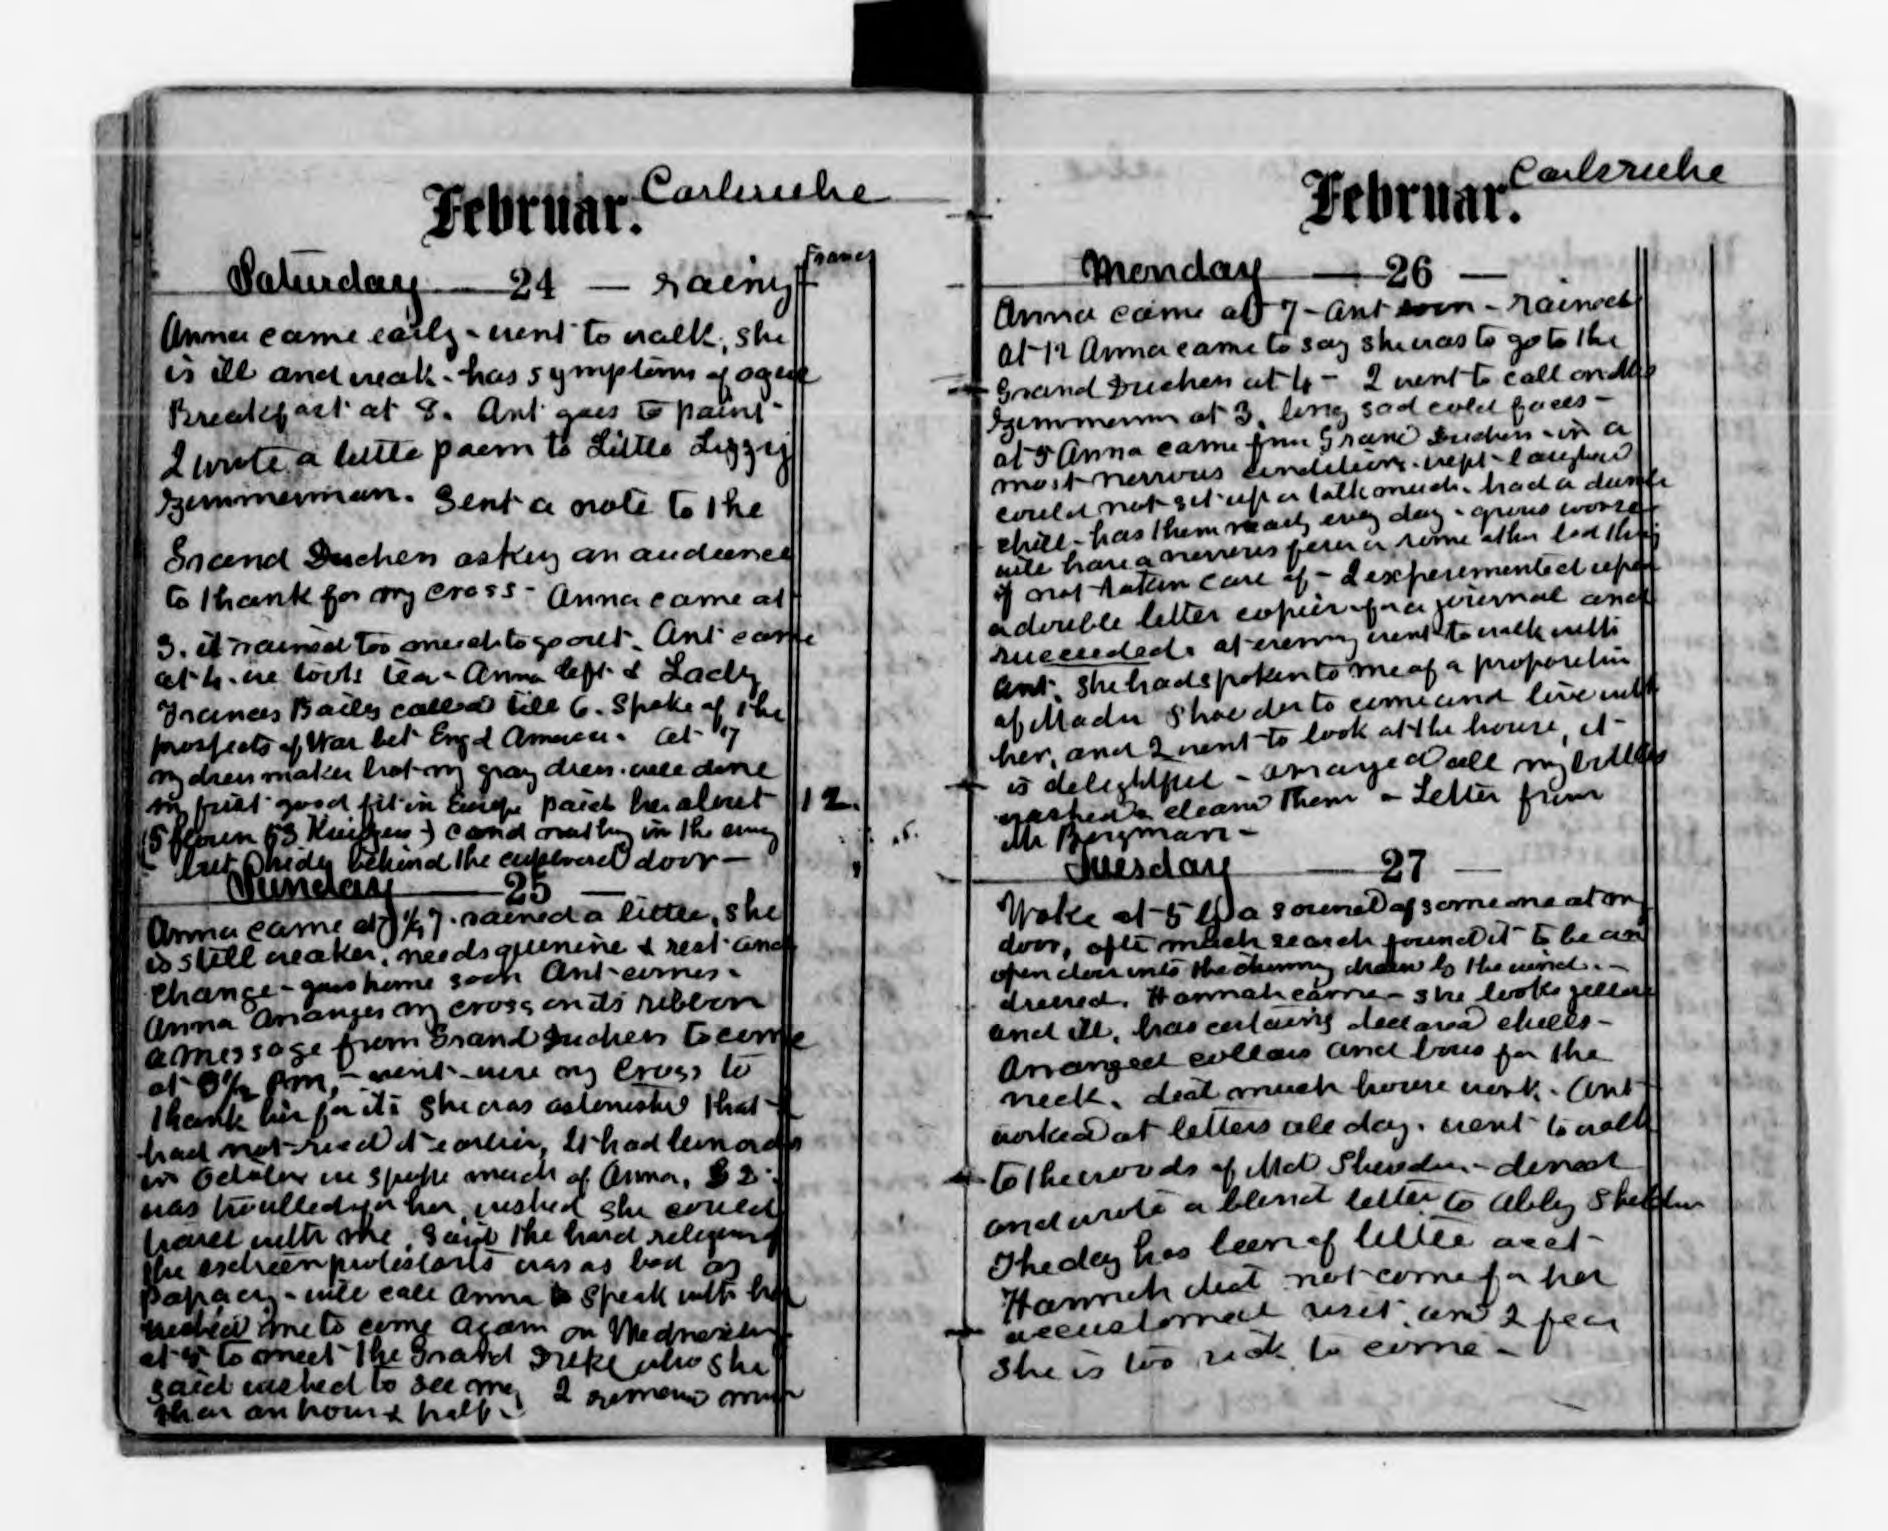 Februar. Carlsruhe
Francs
Saturday 24 — rainy
Anna came early - went to walk, she
is ill and weak - has symptoms of ague
Breakfast at 8. Ant goes to paint -
I wrote a little poem to Little Lizzy
Zimmerman. Sent a note to the
Grand Duchess asking an audience
to thank for my cross - Anna came at
3. it rained too much to go out. Ant came
at 4. we took tea - Anna left & Lady
Frances Bailey called till 6. Spoke of the
prospects of War bet Eng & America. at 7
my dress maker brot my gray dress. well done
my first good fit in Europe paid her about 12.
(5 florin 53 ) in the
but behind the door —
Sunday 25 —
Anna came at ½ 7. rained a little, she
is still weaker, needs quinine & rest and
change - goes home soon Ant comes -
Anna arranges my cross on its ribbon
a message from Grand Duchess to come
at 3½ Pm, - went - wore my Cross to
thank her for it: she was astonished that I
had not rec'd it earlier, it had been ordered
in October we spoke much of Anna, & I
was troubled for her, wished she could
travel with me, said the hard religion of
the protestants was as bad as
Papacy - will call Anna to speak with her
wished me to come again on Wednesday
at 5 to meet the Grand Duke who she
said wished to see me, I remained more
than an hour & half -
Februar. Carlsruhe
Monday — 26 —
Anna came at 7 - Ant soon - rained
at 12 Anna came to say she was to go to the
Grand Duchess at 4 - I went to call on the
Zimmerman at 3. long sad cold faces -
at 5 Anna came from Grand Duchess - in a
most nervous condition. wept - laughed
could not get up or talk much. had a
chill - has them nearly every day - grows worse
will have a nervous fever or some other bad thing
if not taken care of - I experimented upon
a double letter copier for a journal and
succeeded. at evening went to walk with
Ant. She had spoken to me of a proposition
of Madm to come and live with
her, and I went to look at the house, it
is delightful - arranged all my bottles
washed & cleaned them - Letter from
Mr Bergman -
Tuesday — 27 —
Woke at 5 by a sound of some one at my
door, after much search found it to be an
open door into the chimney drawn by the wind. -
dressed. Hannah came - she looks yellow
and ill, has certainly declared chills -
Arranged collars and bows for the
neck. did much house work. Ant
worked at letters all day. went to walk
to the woods of Md - dined
and wrote a blind letter to Abby Sheldon
The day has been of little acct -
Hannah did not come for her
accustomed visit. and I fear
she is too sick to come -